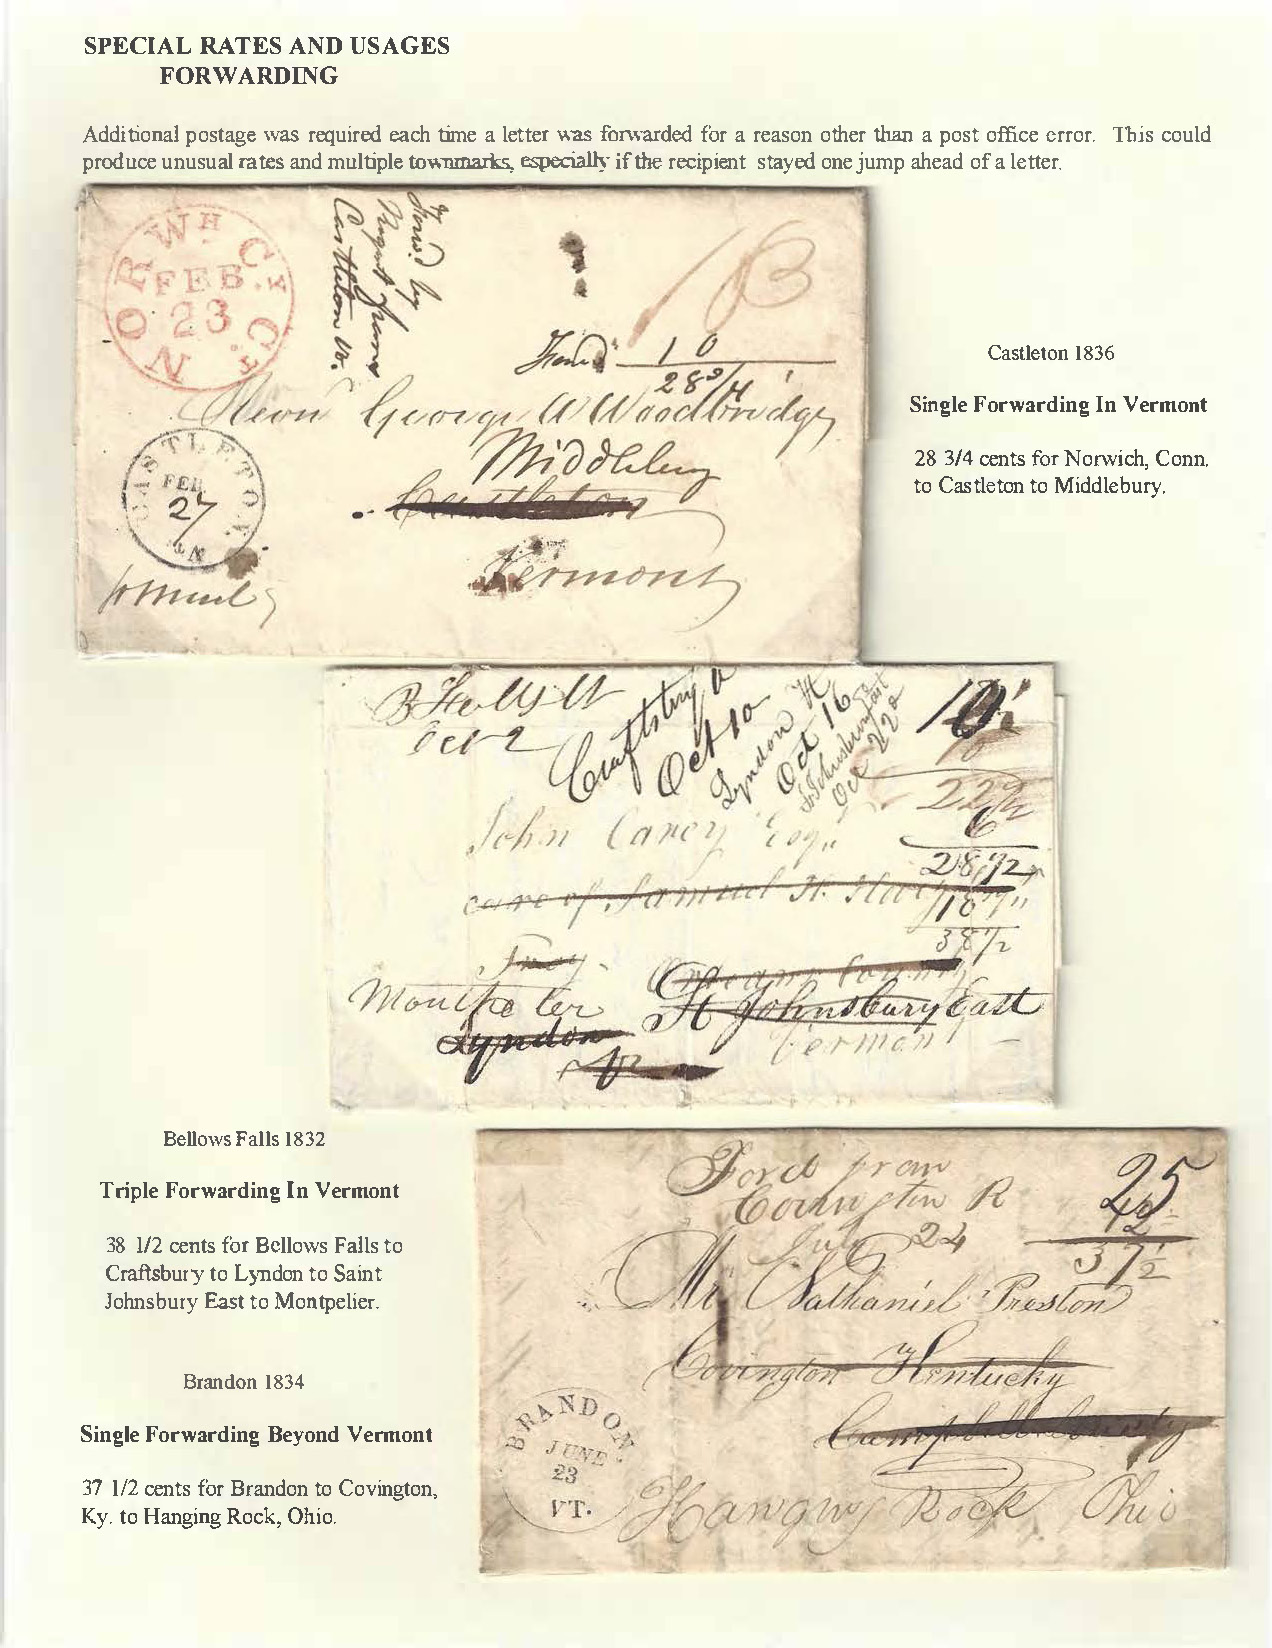 SPECIAL RATES AND USAGES
FORWARDING
Additional postage was required each time a letter was forwarded for a reason other than a post office error. This could
produce unusual rates and multiple townmarks, especially if the recipient stayed one jump ahead of a letter.
NORWH CY CT.
FEB.
23
Castleton Vt.
18
Forwd 10
28 3/4
George W Woodbridge
Middlebury
Castleton
Vermont
CASTLETON VT.
FEB
27
Castleton 1836
Single Forwarding In Vermont
28 3/4 cents for Norwich, Conn.
to Castleton to Middlebury.
B Falls Vt
Oct 2
Craftsbury Vt
Oct 10
Lyndon Vt
Oct 16
St Johnsbury East
Oct 22
10
22 1/2
6
28 1/2
38 1/2
John Carey Esqr
care of Samuel H.
Troy.
Montpelier
St Johnsbury East
Lyndon
Vermont
Bellows Falls 1832
Triple Forwarding In Vermont
38 1/2 cents for Bellows Falls to
Craftsbury to Lyndon to Saint
Johnsbury East to Montpelier.
Brandon 1834
Single Forwarding Beyond Vermont
37 1/2 cents for Brandon to Covington,
Ky. to Hanging Rock, Ohio.
Ford from
Covington K
July 24
25
12 1/2
37 1/2
Mr. Nathaniel Preston
Covington Kentucky
Campbell County
BRANDON
JUNE
23
VT.
Hanging Rock Ohio